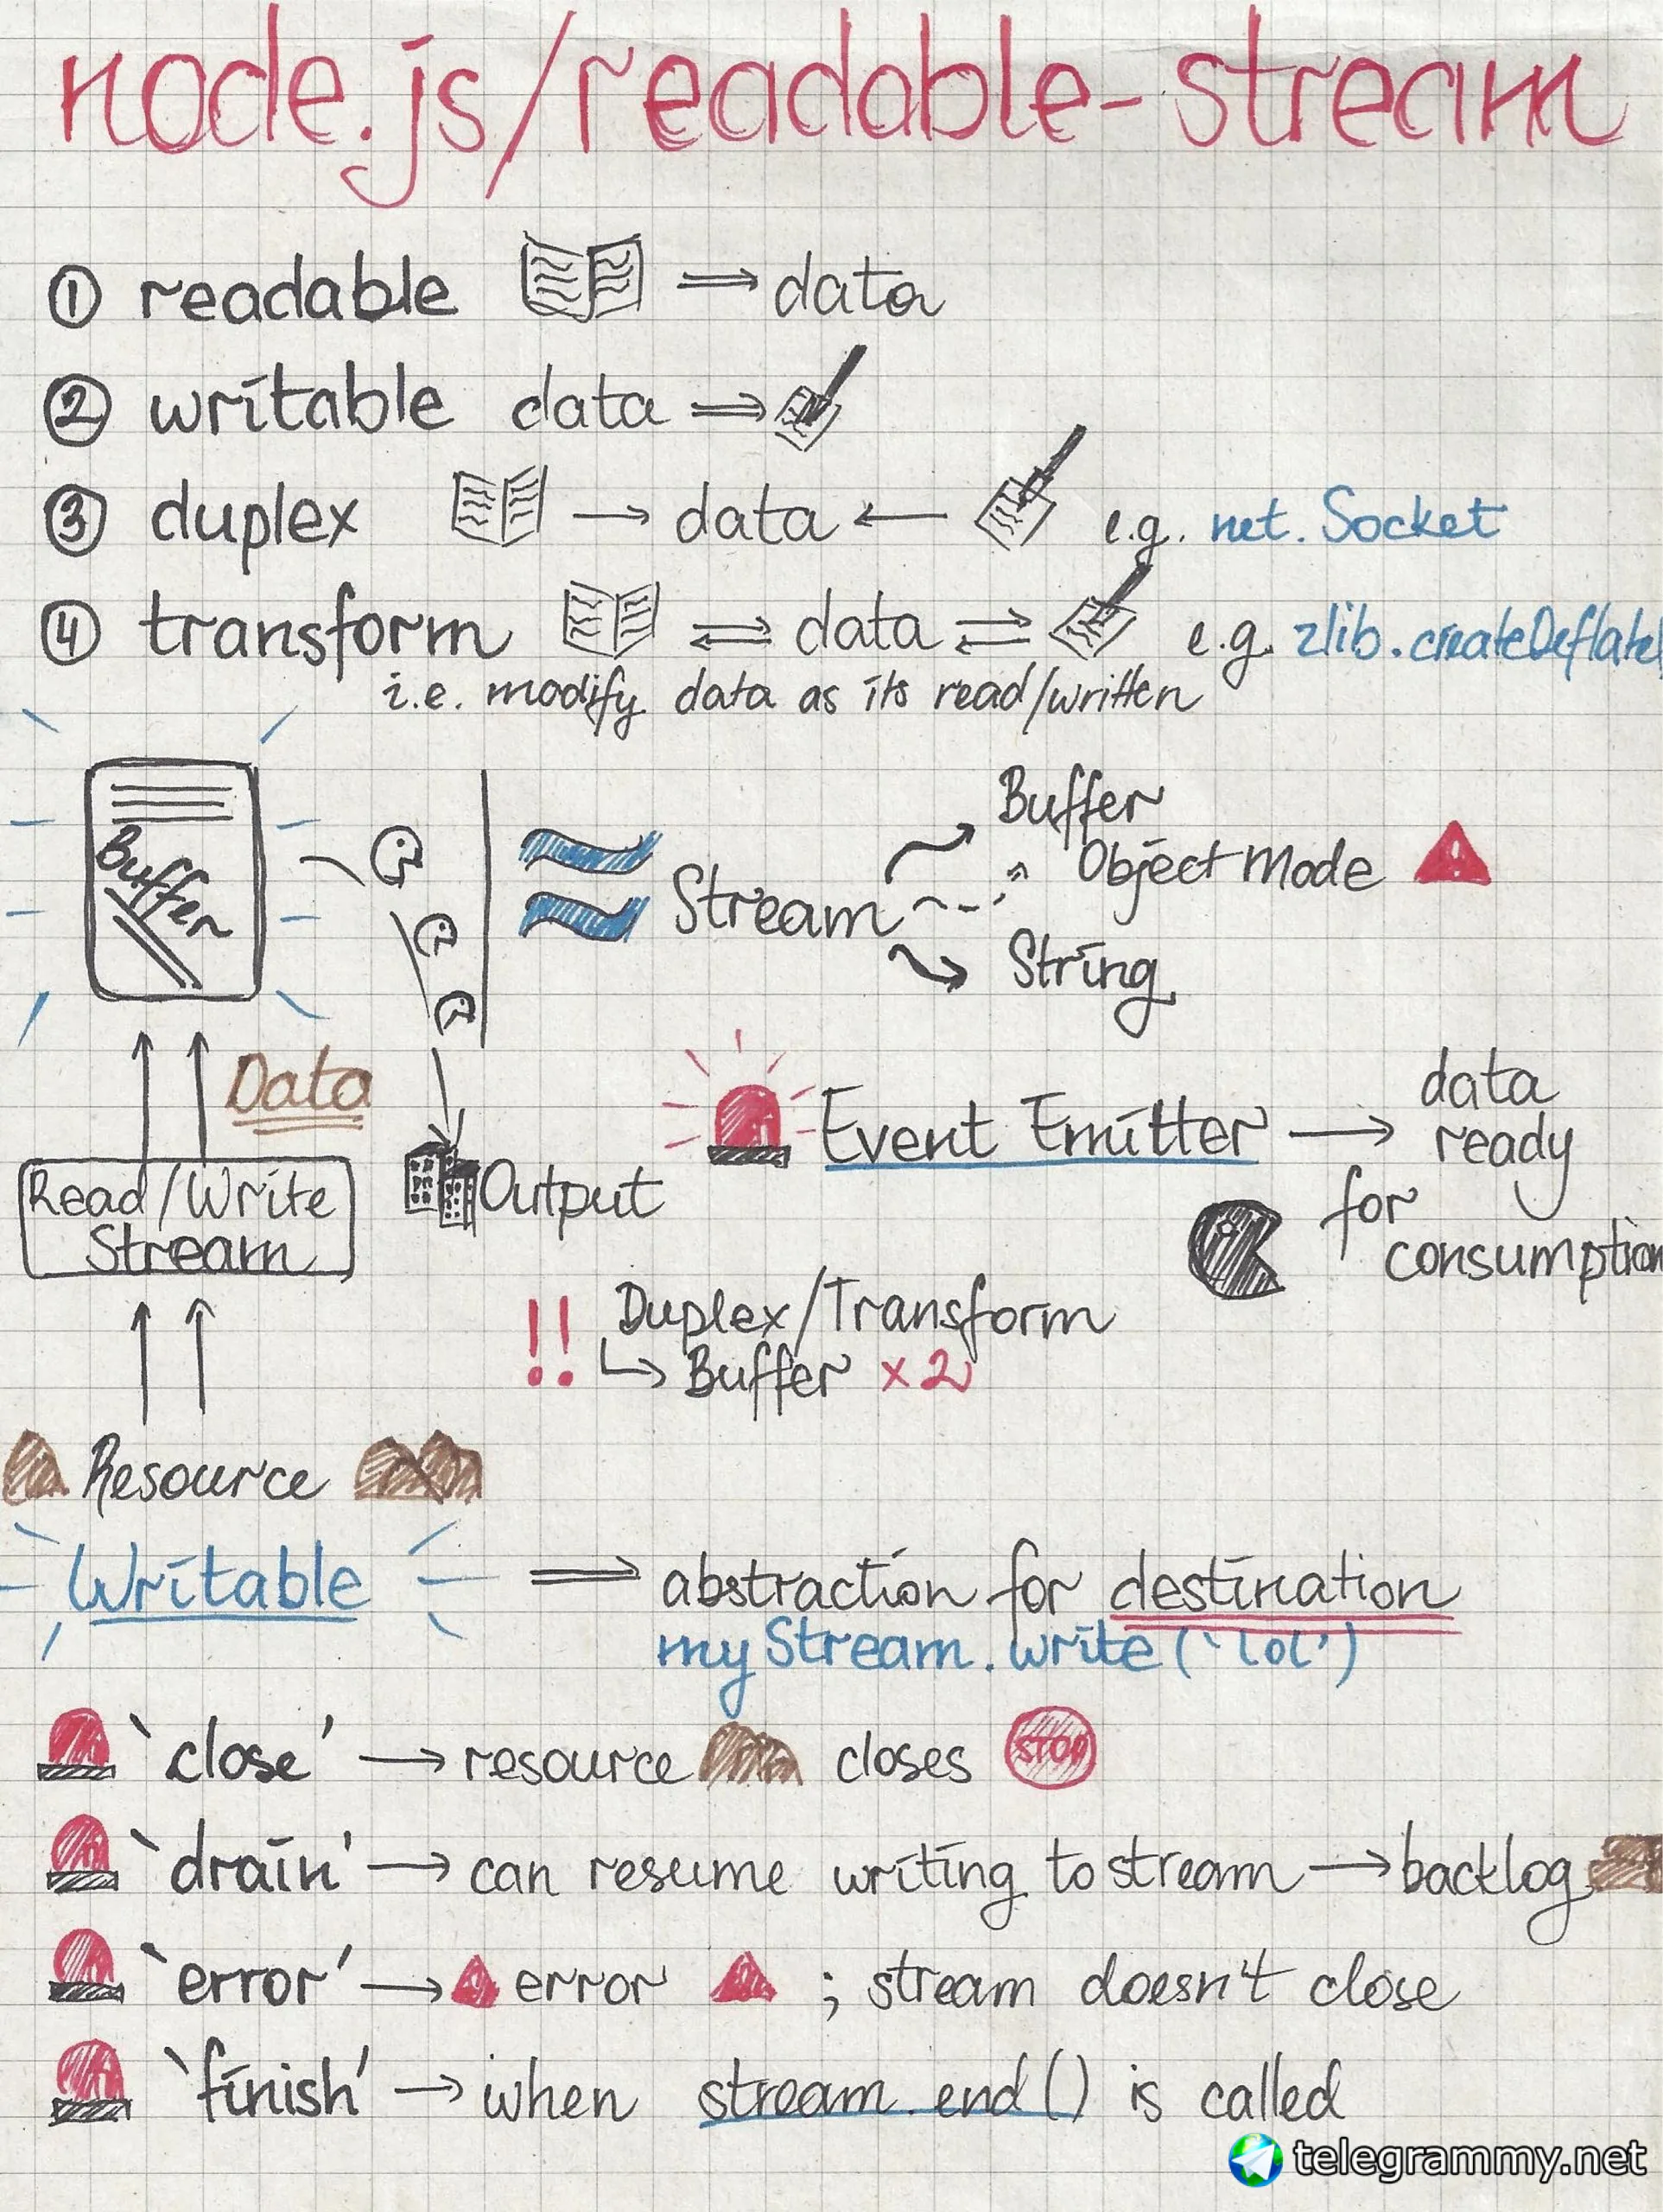 node.js/readable-stream
① readable ⇒ data
② writable data ⇒
③ duplex → data ← e.g. net.Socket
④ transform ⇌ data ⇌ e.g. zlib.createDeflate
i.e. modify data as its read/written
Buffer
Stream
Buffer
Object Mode
String
Data
Read/Write
Stream
Output
Resource
Event Emitter → data
ready
for
consumption
!! Duplex/Transform
↳ Buffer x2
Writable ⇒ abstraction for destination
myStream.write(`lol')
`close' → resource closes STOP
`drain' → can resume writing to stream → backlog
`error' → error ; stream doesn't close
`finish' → when stream.end() is called
telegrammy.net